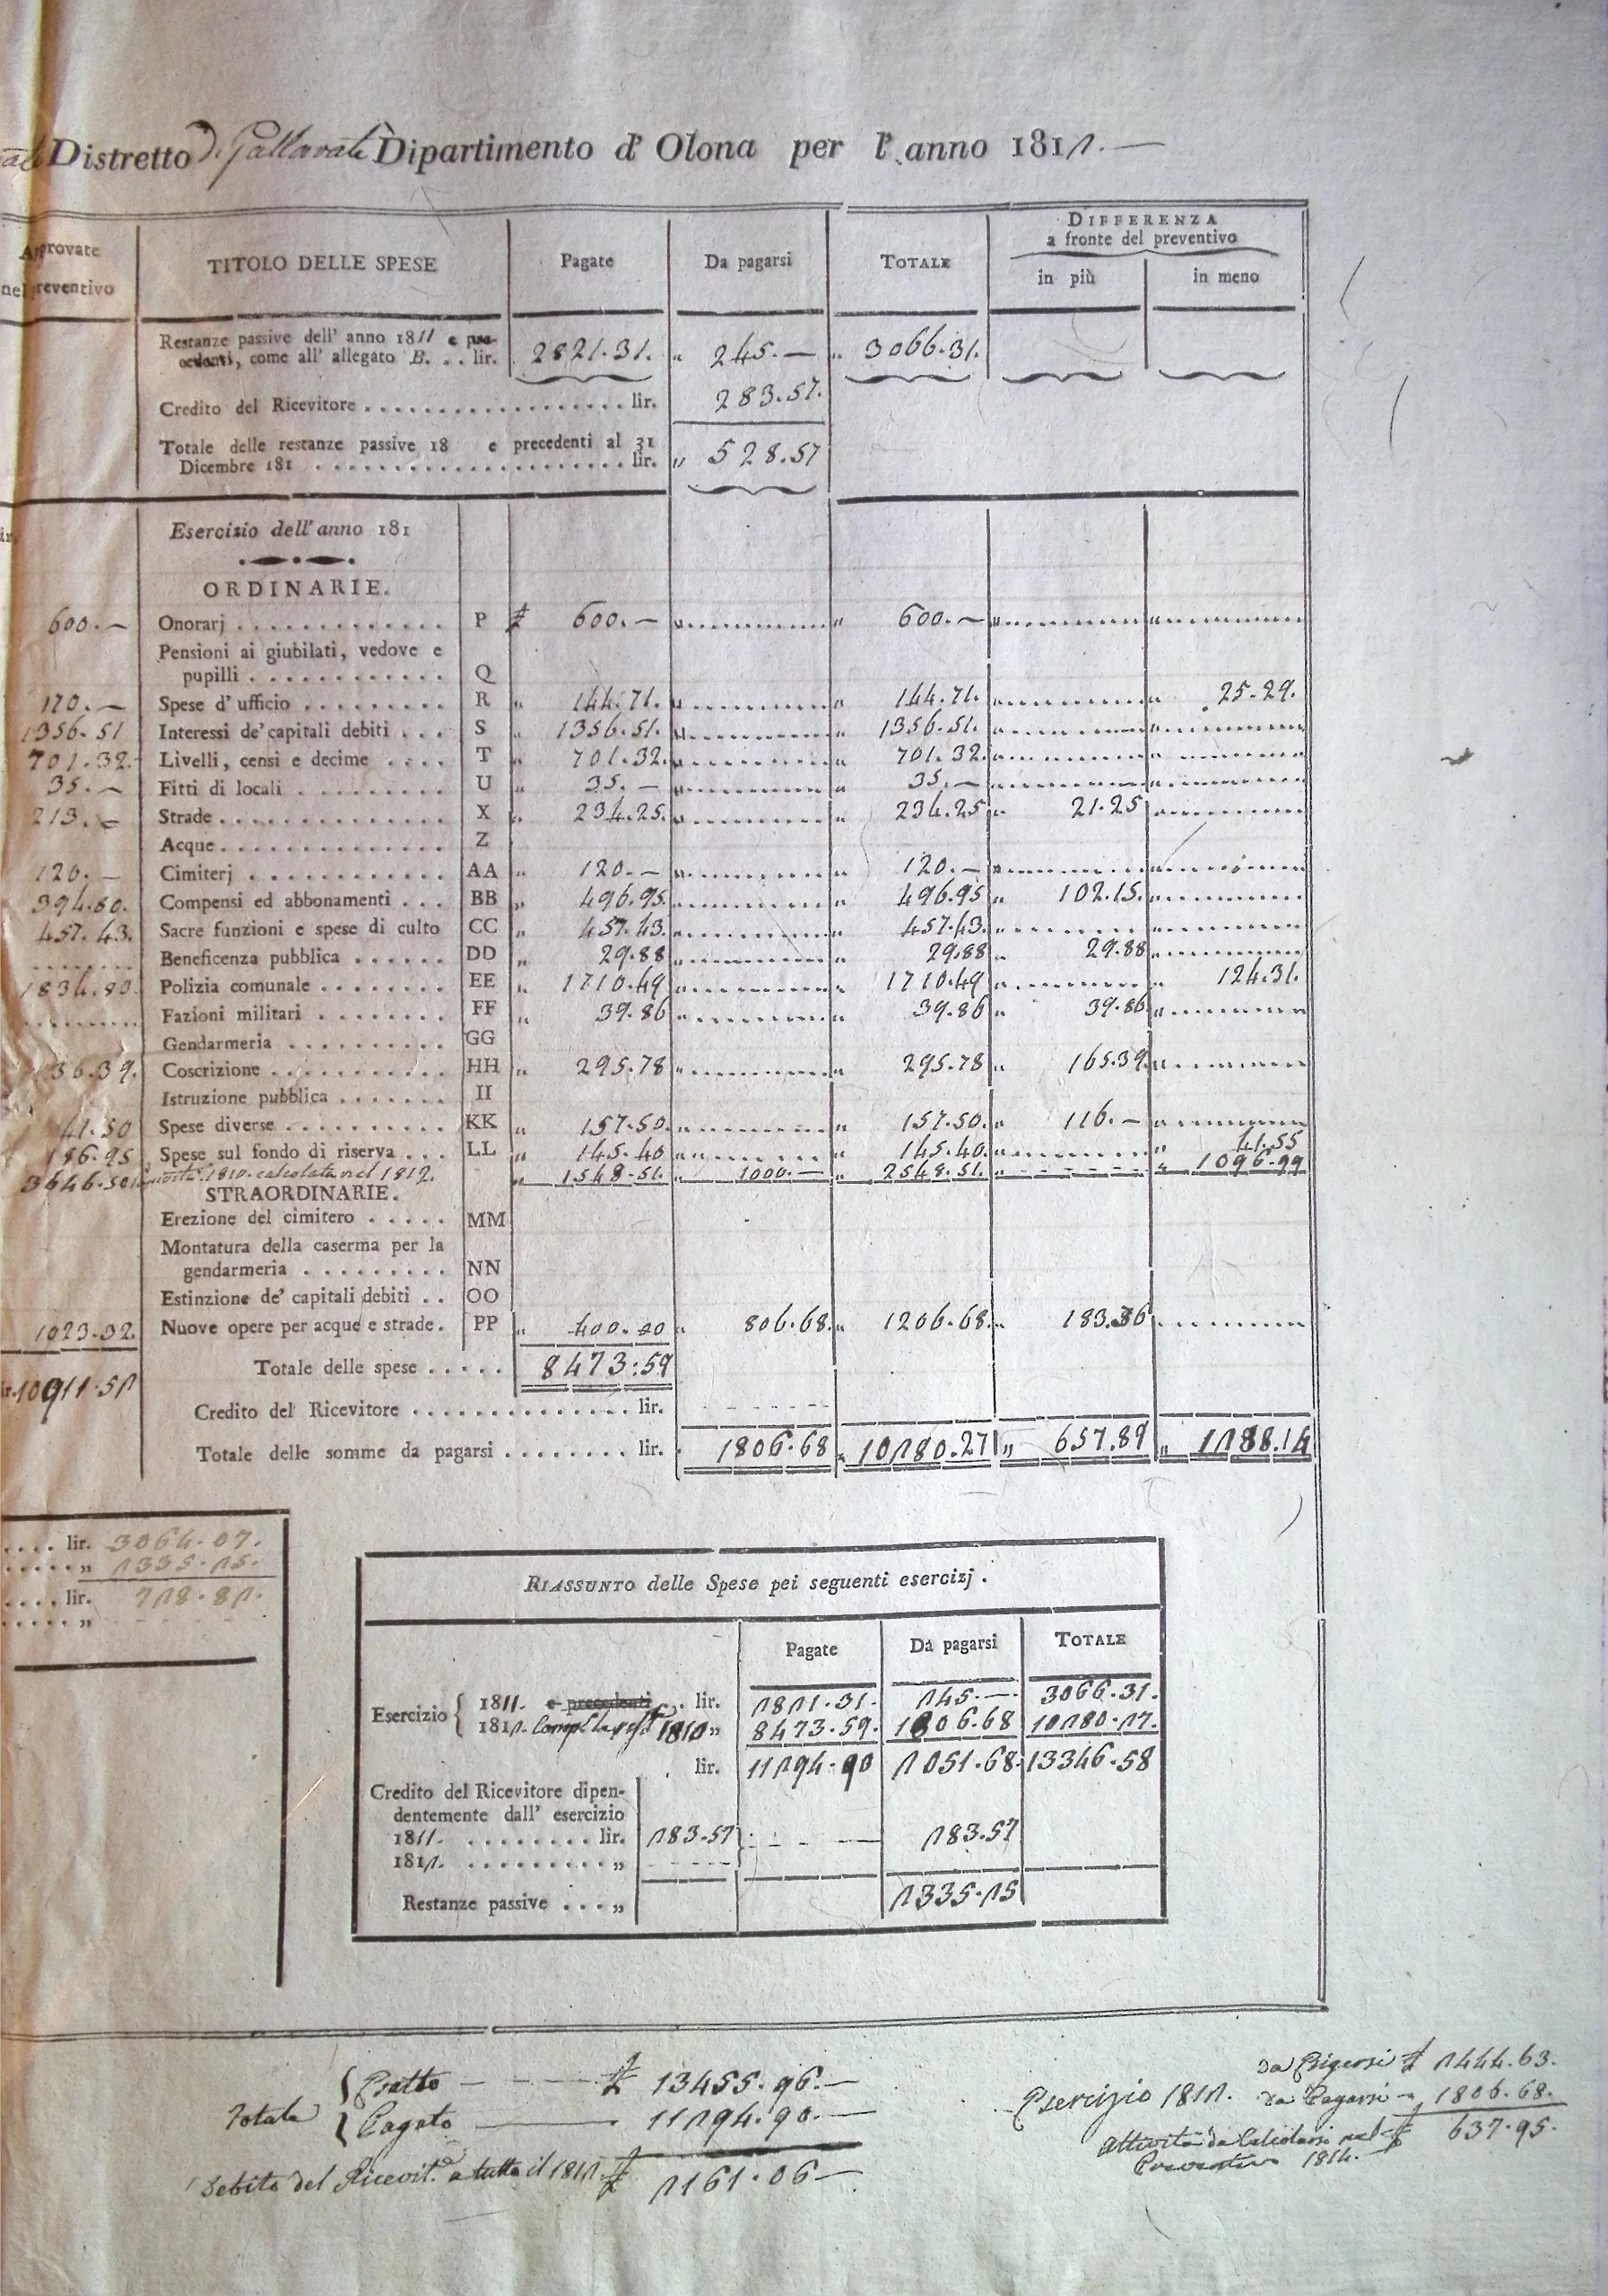 Distretto di Gallarate Dipartimento d' Olona per l' anno 1812.
Approvate nel preventivo
TITOLO DELLE SPESE
Pagate
Da pagarsi
TOTALE
DIFFERENZA
a fronte del preventivo
in più
in meno
Restanze passive dell' anno 1811 e pre-
cedenti, come all' allegato B. . . lir. 2821.31. „ 245.— „ 3066.31.
Credito del Ricevitore . . . . . . lir. 283.57.
Totale delle restanze passive 18 e precedenti al 31
Dicembre 181 . . . . . . lir. „ 528.57
Esercizio dell' anno 181
ORDINARIE.
600.— Onorarj . . . . . . P 600.— „ 600.—
Pensioni ai giubilati, vedove e
pupilli . . . . . . Q
170.— Spese d' ufficio . . . . . . R „ 144.71. „ 144.71. „ 25.29.
1356.51 Interessi de' capitali debiti . . . S „ 1356.51. „ 1356.51.
701.32. Livelli, censi e decime . . . . T „ 701.32. „ 701.32.
35.— Fitti di locali . . . . . . U „ 35.— „ 35.—
213.— Strade . . . . . . X „ 234.25. „ 234.25 „ 21.25
Acque . . . . . . Z
120.— Cimiterj . . . . . . AA „ 120.— „ 120.—
394.80. Compensi ed abbonamenti . . . BB „ 496.95. „ 496.95 „ 102.15.
457.43. Sacre funzioni e spese di culto CC „ 457.43. „ 457.43.
Beneficenza pubblica . . . . . . DD „ 29.88 „ 29.88 „ 29.88
1834.80. Polizia comunale . . . . . . EE „ 1710.49 „ 1710.49 „ 124.31.
Fazioni militari . . . . . . FF „ 39.86 „ 39.86 „ 39.86
Gendarmeria . . . . . . GG
36.39. Coscrizione . . . . . . HH „ 295.78 „ 295.78 „ 165.39
Istruzione pubblica . . . . . . II
41.50 Spese diverse . . . . . . KK „ 157.50. „ 157.50. „ 116.—
186.95 Spese sul fondo di riserva . . . LL „ 145.40 „ 145.40. „ 41.55
3646.50 1810. calcolata nel 1812. „ 1548.51. „ 1000.— „ 2548.51. „ 1096.99
STRAORDINARIE.
Erezione del cimitero . . . . . MM
Montatura della caserma per la
gendarmeria . . . . . . NN
Estinzione de' capitali debiti . . OO
1023.32. Nuove opere per acque e strade. PP „ 400.00 „ 806.68. „ 1206.68. „ 183.36
Totale delle spese . . . . . 8473:59
10911.51
Credito del Ricevitore . . . . . . lir.
Totale delle somme da pagarsi . . . . . . lir. 1806.68 „ 10280.27 „ 657.89 „ 1288.14
. . . . lir. 3064.07.
. . . . „ 2335.25.
. . . . lir. 728.82.
. . . . „
RIASSUNTO delle Spese pei seguenti esercizj.
Pagate
Da pagarsi
TOTALE
Esercizio { 1811. e precedenti . lir. 2821.31. 245.— 3066.31.
1812. 1810 „ 8473.59. 1806.68 10280.27.
lir. 11294.90 2051.68. 13346.58
Credito del Ricevitore dipen-
dentemente dall' esercizio
1811. . . . . . . lir. 283.57 283.57
1812. . . . . . . „
Restanze passive . . . „ 2335.25
Totale { Esatto — £ 13455.96.—
{ Pagato — 11294.90.—
Debito del Ricevit.e a tutto il 1812. £ 2161.06—
Esercizio 1812. da Esigersi £ 2444.63.
da Pagarsi 1806.68.
Attività da Calcolarsi nel £ 637.95.
Preventivo 1814.